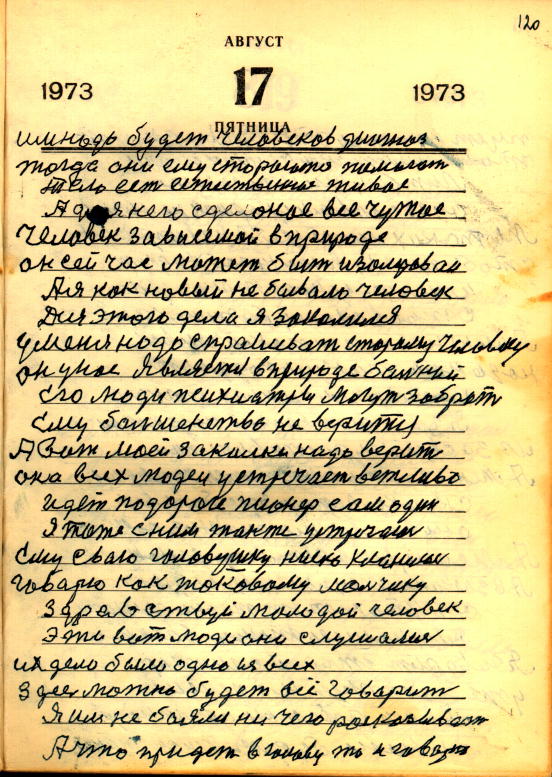 120
АВГУСТ
1973 17 1973
ПЯТНИЦА
им надь будет человеков диогноз
тогда они ему стораюто помагат
тело ест естественное живое
А для него сделоное все чужое
Человек зависемой в природе
он сей час может быт изолирован
А я как новый не бывало человек
Для этого дела я Закалился
у меня надо спрашиват старому человеку
он у нас является в природе больной
Его люди психиатры могут забрат
Ему большенство не верити
А вот моей закалки надо верит
она всех людей устречает вежливо
идет подороге пионер сам один
Я тоже с ним также устречаюся
Ему сваю головушку ниско кланяюся
говарю как токовому малчику
Здравствуй молодой человек
Эти вот люди они слушалися
их дело было одно из всех
Здес можно будет всё говарит
Я им не боялся ни чего росказыват
А что придет в голову то и говарю